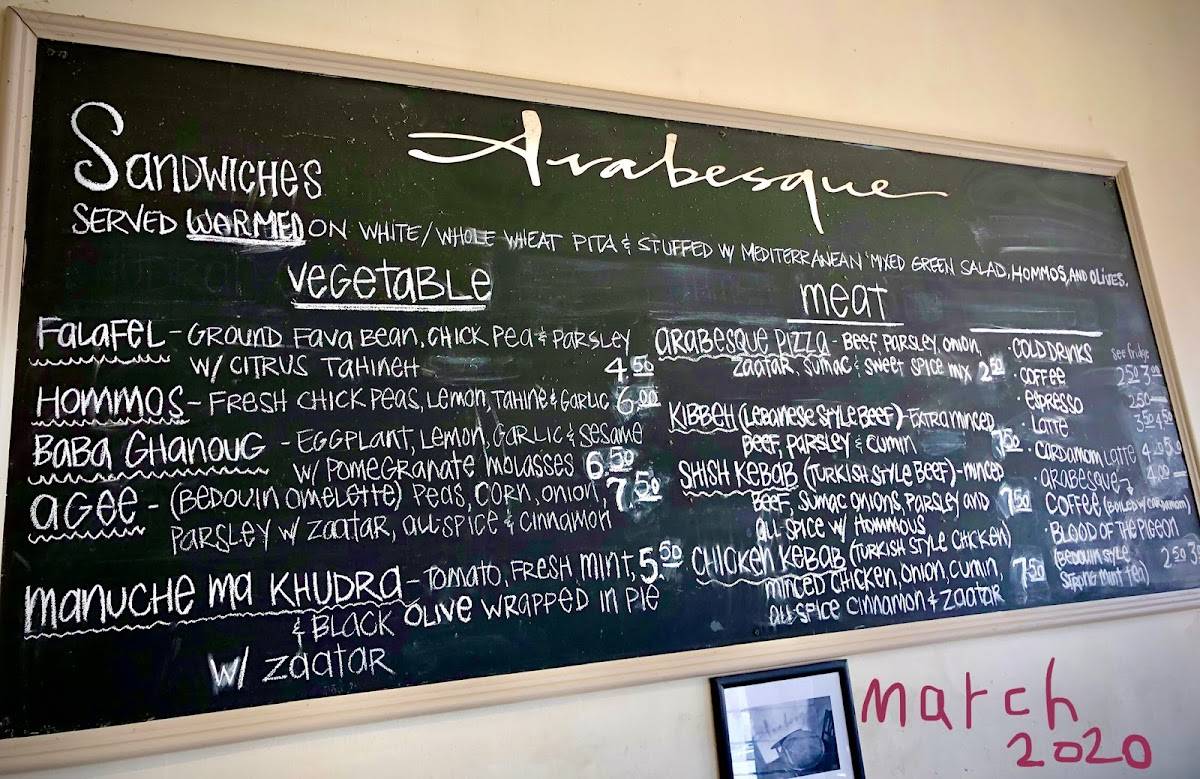 Arabesque
SANDWICHE'S
SERVED WARMED ON WHITE/WHOLE WHEAT PITA & STUFFED W/ MEDITERRANEAN MIXED GREEN SALAD, HOMMOS, AND OLIVES.
VEGETABLE
FALAFEL - GROUND FAVA BEAN, CHICK PEA & PARSLEY
W/ CITRUS TAHINEH 4.50
HOMMOS - FRESH CHICK PEAS, LEMON, TAHINE & GARLIC 6.00
BABA GHANOUG - EGGPLANT, LEMON, GARLIC & SESAME
W/ POMEGRANATE MOLASSES 6.50
AGEE - (BEDOUIN OMELETTE) PEAS, CORN, ONION, 7.50
PARSLEY W/ ZAATAR, ALL-SPICE & CINNAMON
MANUCHE MA KHUDRA - TOMATO, FRESH MINT, 5.50
& BLACK OLIVE WRAPPED IN PIE
W/ ZAATAR
MEAT
ARABESQUE PIZZA - BEEF PARSLEY, ONION,
ZAATAR, SUMAC & SWEET SPICE MIX 2.50
KIBBEH (LEBANESE STYLE BEEF) - EXTRA MINCED
BEEF, PARSLEY & CUMIN 7.50
SHISH KEBAB (TURKISH STYLE BEEF) - MINCED
BEEF, SUMAC ONIONS, PARSLEY AND 7.50
ALL-SPICE W/ HOMMOUS
CHICKEN KEBAB (TURKISH STYLE CHICKEN)
MINCED CHICKEN, ONION, CUMIN, 7.50
ALL-SPICE CINNAMON & ZAATAR
· COLD DRINKS See fridge
· COFFEE 2.50 3.00
· ESPRESSO 2.50
· LATTE 3.50 4.50
· CARDAMOM LATTE
· ARABESQUE 4.00
COFFEE (BOILED W/ CARDAMOM)
· BLOOD OF THE PIGEON
(BEDOUIN STYLE 2.50
STRONG MINT TEA)
march
2020